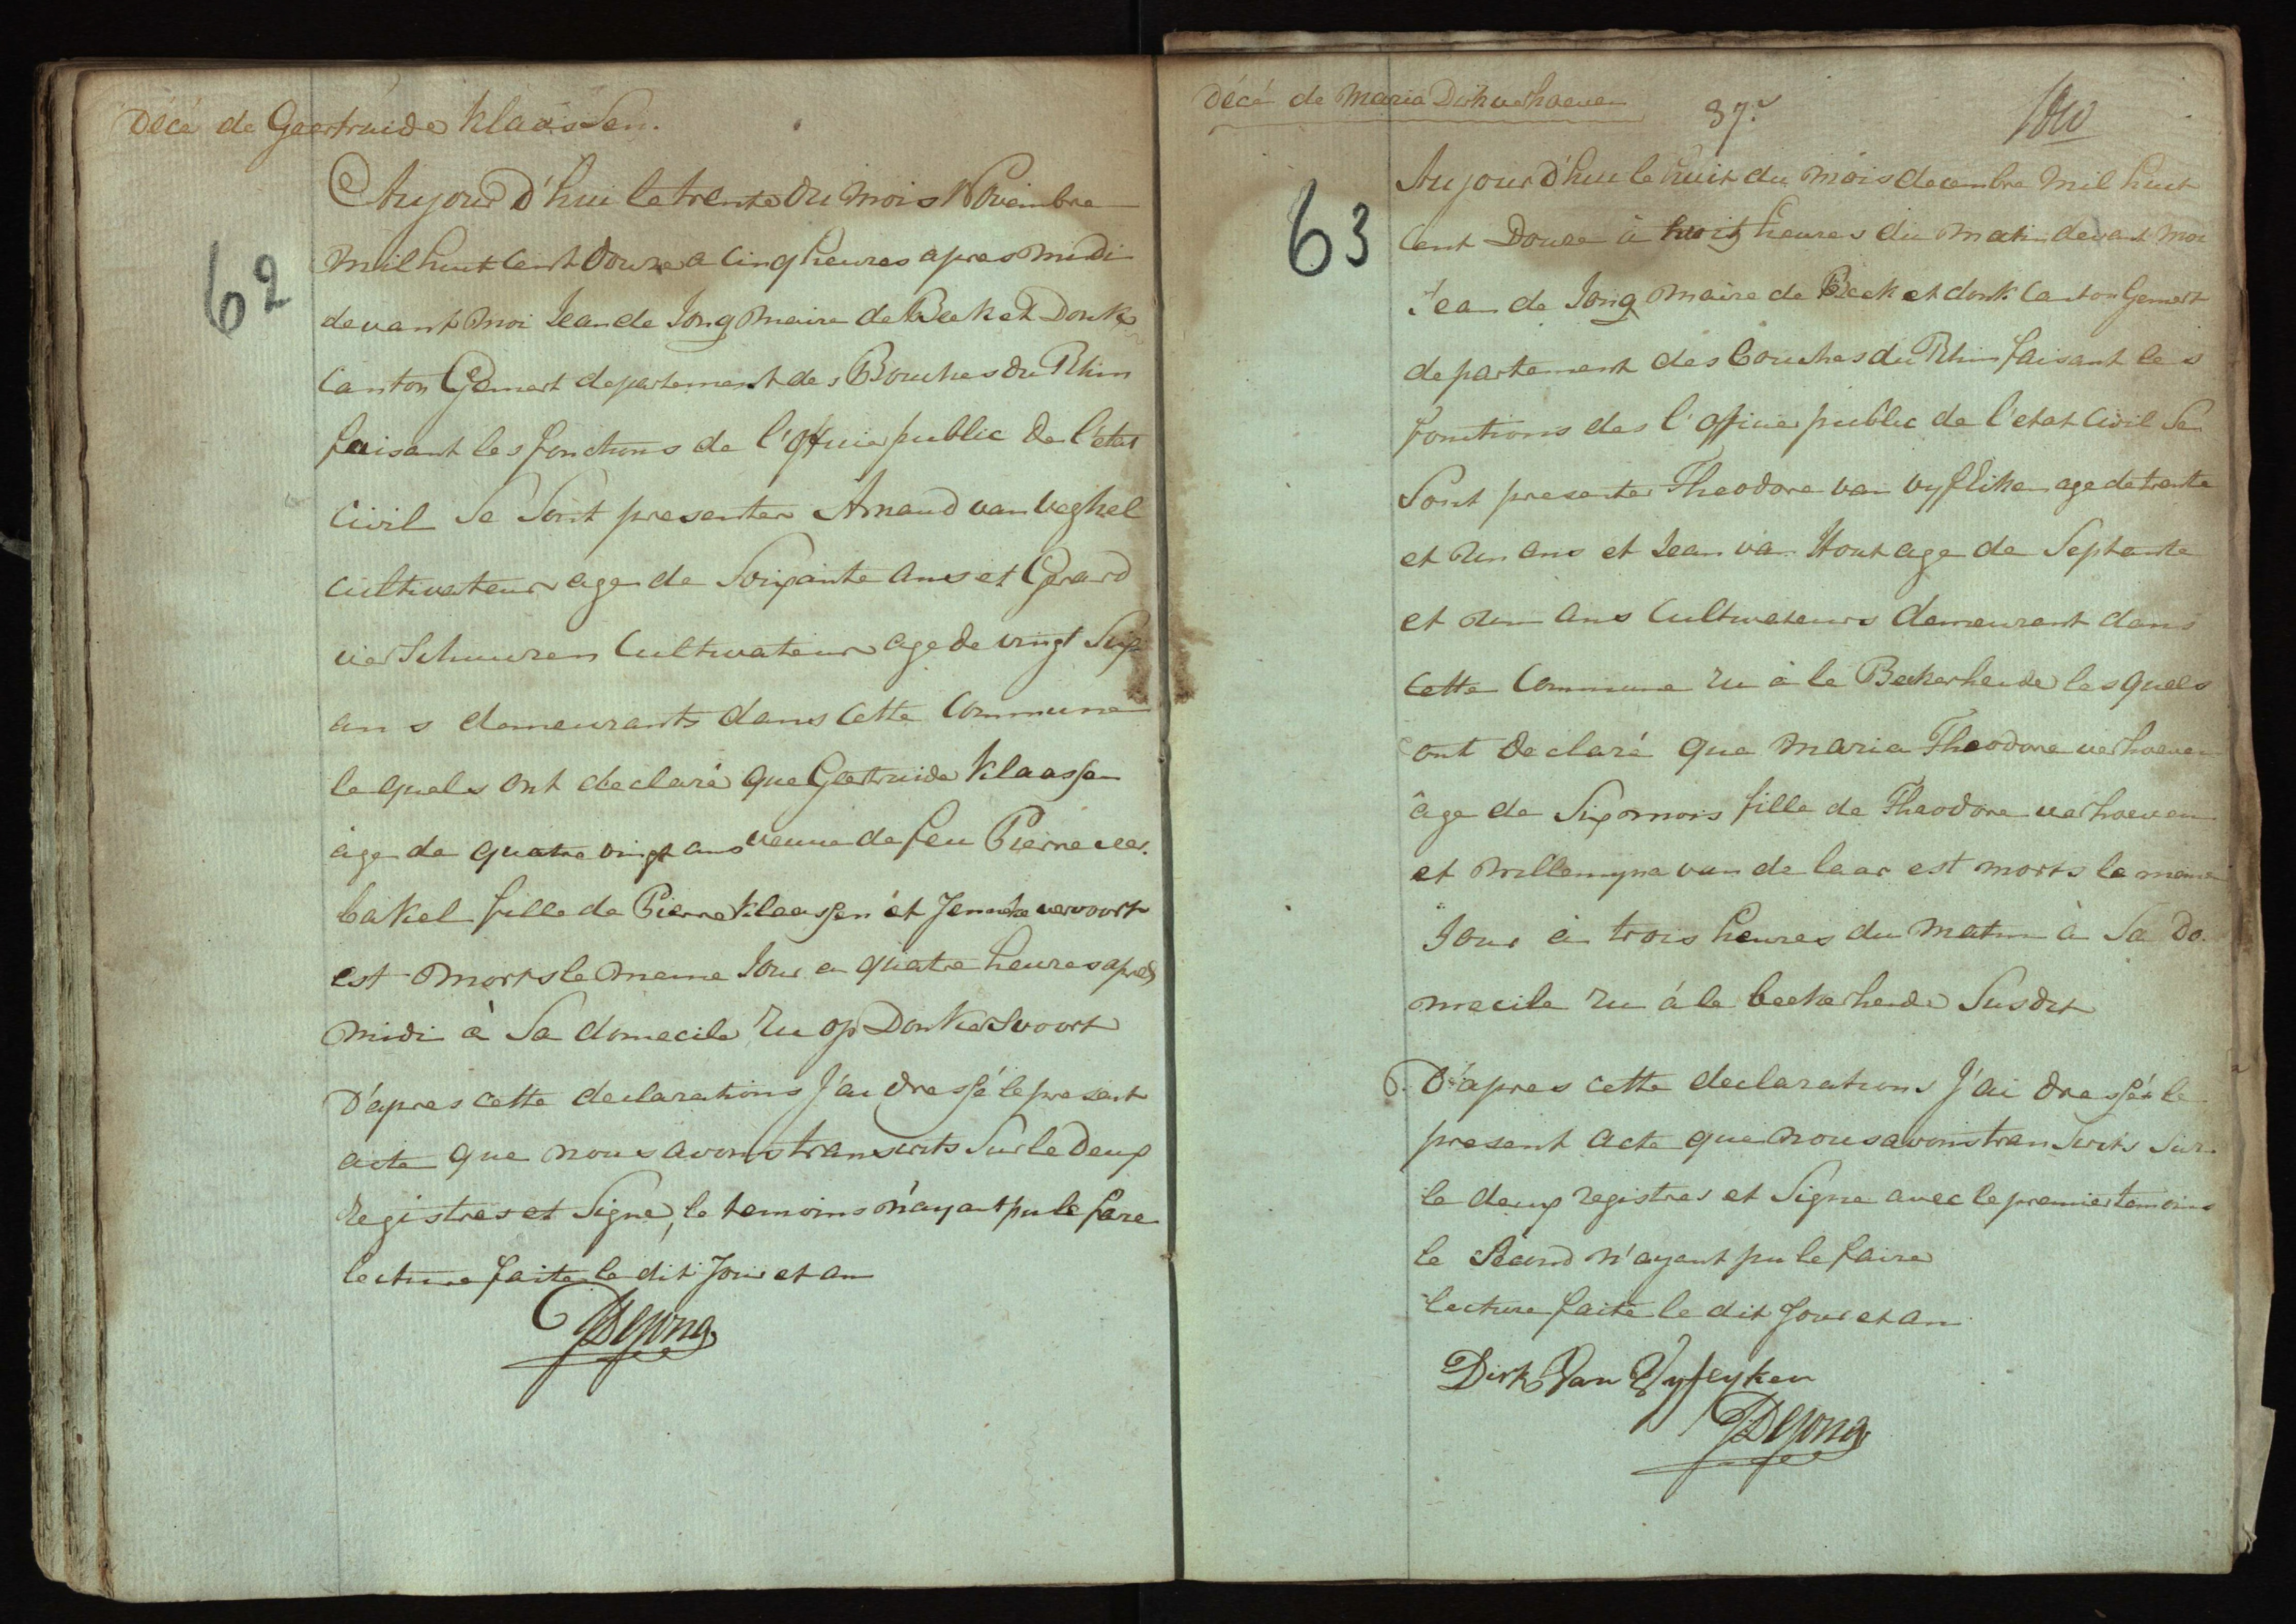 Décé de Geertruida Klaassen.
62
Aujourd'hui le trente du mois Novembre
mil huit cent douze a cinq heures apres midi
devant moi Jean de Jong maire de Beek et Donk
Canton Gemert departement des Bouches du Rhin
faisant les fonctions de l'officie public de l'etat
Civil se sont presenter Arnaud van Veghel
cultivateur age de Soixante ans et Gerard
verschuuren Cultivateur age de vingt Six
ans demeurants dans Cette Commune
le quels ont declaré que Geertruida Klaassen
âge de quatre vingt ans veuve de feu Pierre ver
bakel fille de Pierre Klaassen et Jenneke vervoort
est morts le meme Jour a quatre heures apres
midi à Sa domecile Ru op Donkersvoort
D'apres cette declarations J'ai dressé le present
acte que nous avons transcrits Sur le deux
Registres et Signe, le temoins n'ayant pu le fare
lecture faite le dit Jour et an
DeJong
Décé de Maria Dirk verhoeven
37
63
Aujourd'hui le huit du mois decembre mil huit
Cent Douze à huit heures du matin devant moi
Jean de Jong maire de Beek et donk Canton Gemert
departement des bouches du Rhin faisant les
fonctions des l'officie public de l'etat Civil Se
Sont presenter Theodore van vyfliken age de trente
et un ans et Jean van Hout age de Septante
et un ans Cultivateurs demeurent dans
Cette Commune Ru à le Beekerheide les quels
ont declaré que Maria Theodore verhoeven
âge de Six mois fille de Theodore verhoeven
et Willemyna van de laar est morts le meme
Jour à trois heures du matin à Sa Do
mecile Ru á le beekerheide Susdit
D'apres cette declarations J'ai dressé le
present acte que nous avons transcrits sur
le deux registres et Signe avec le premier temoins
le Second n'ayant pu le faire
lecture faite le dit Jour et an
Dirk Van Vyfeyken
DeJong